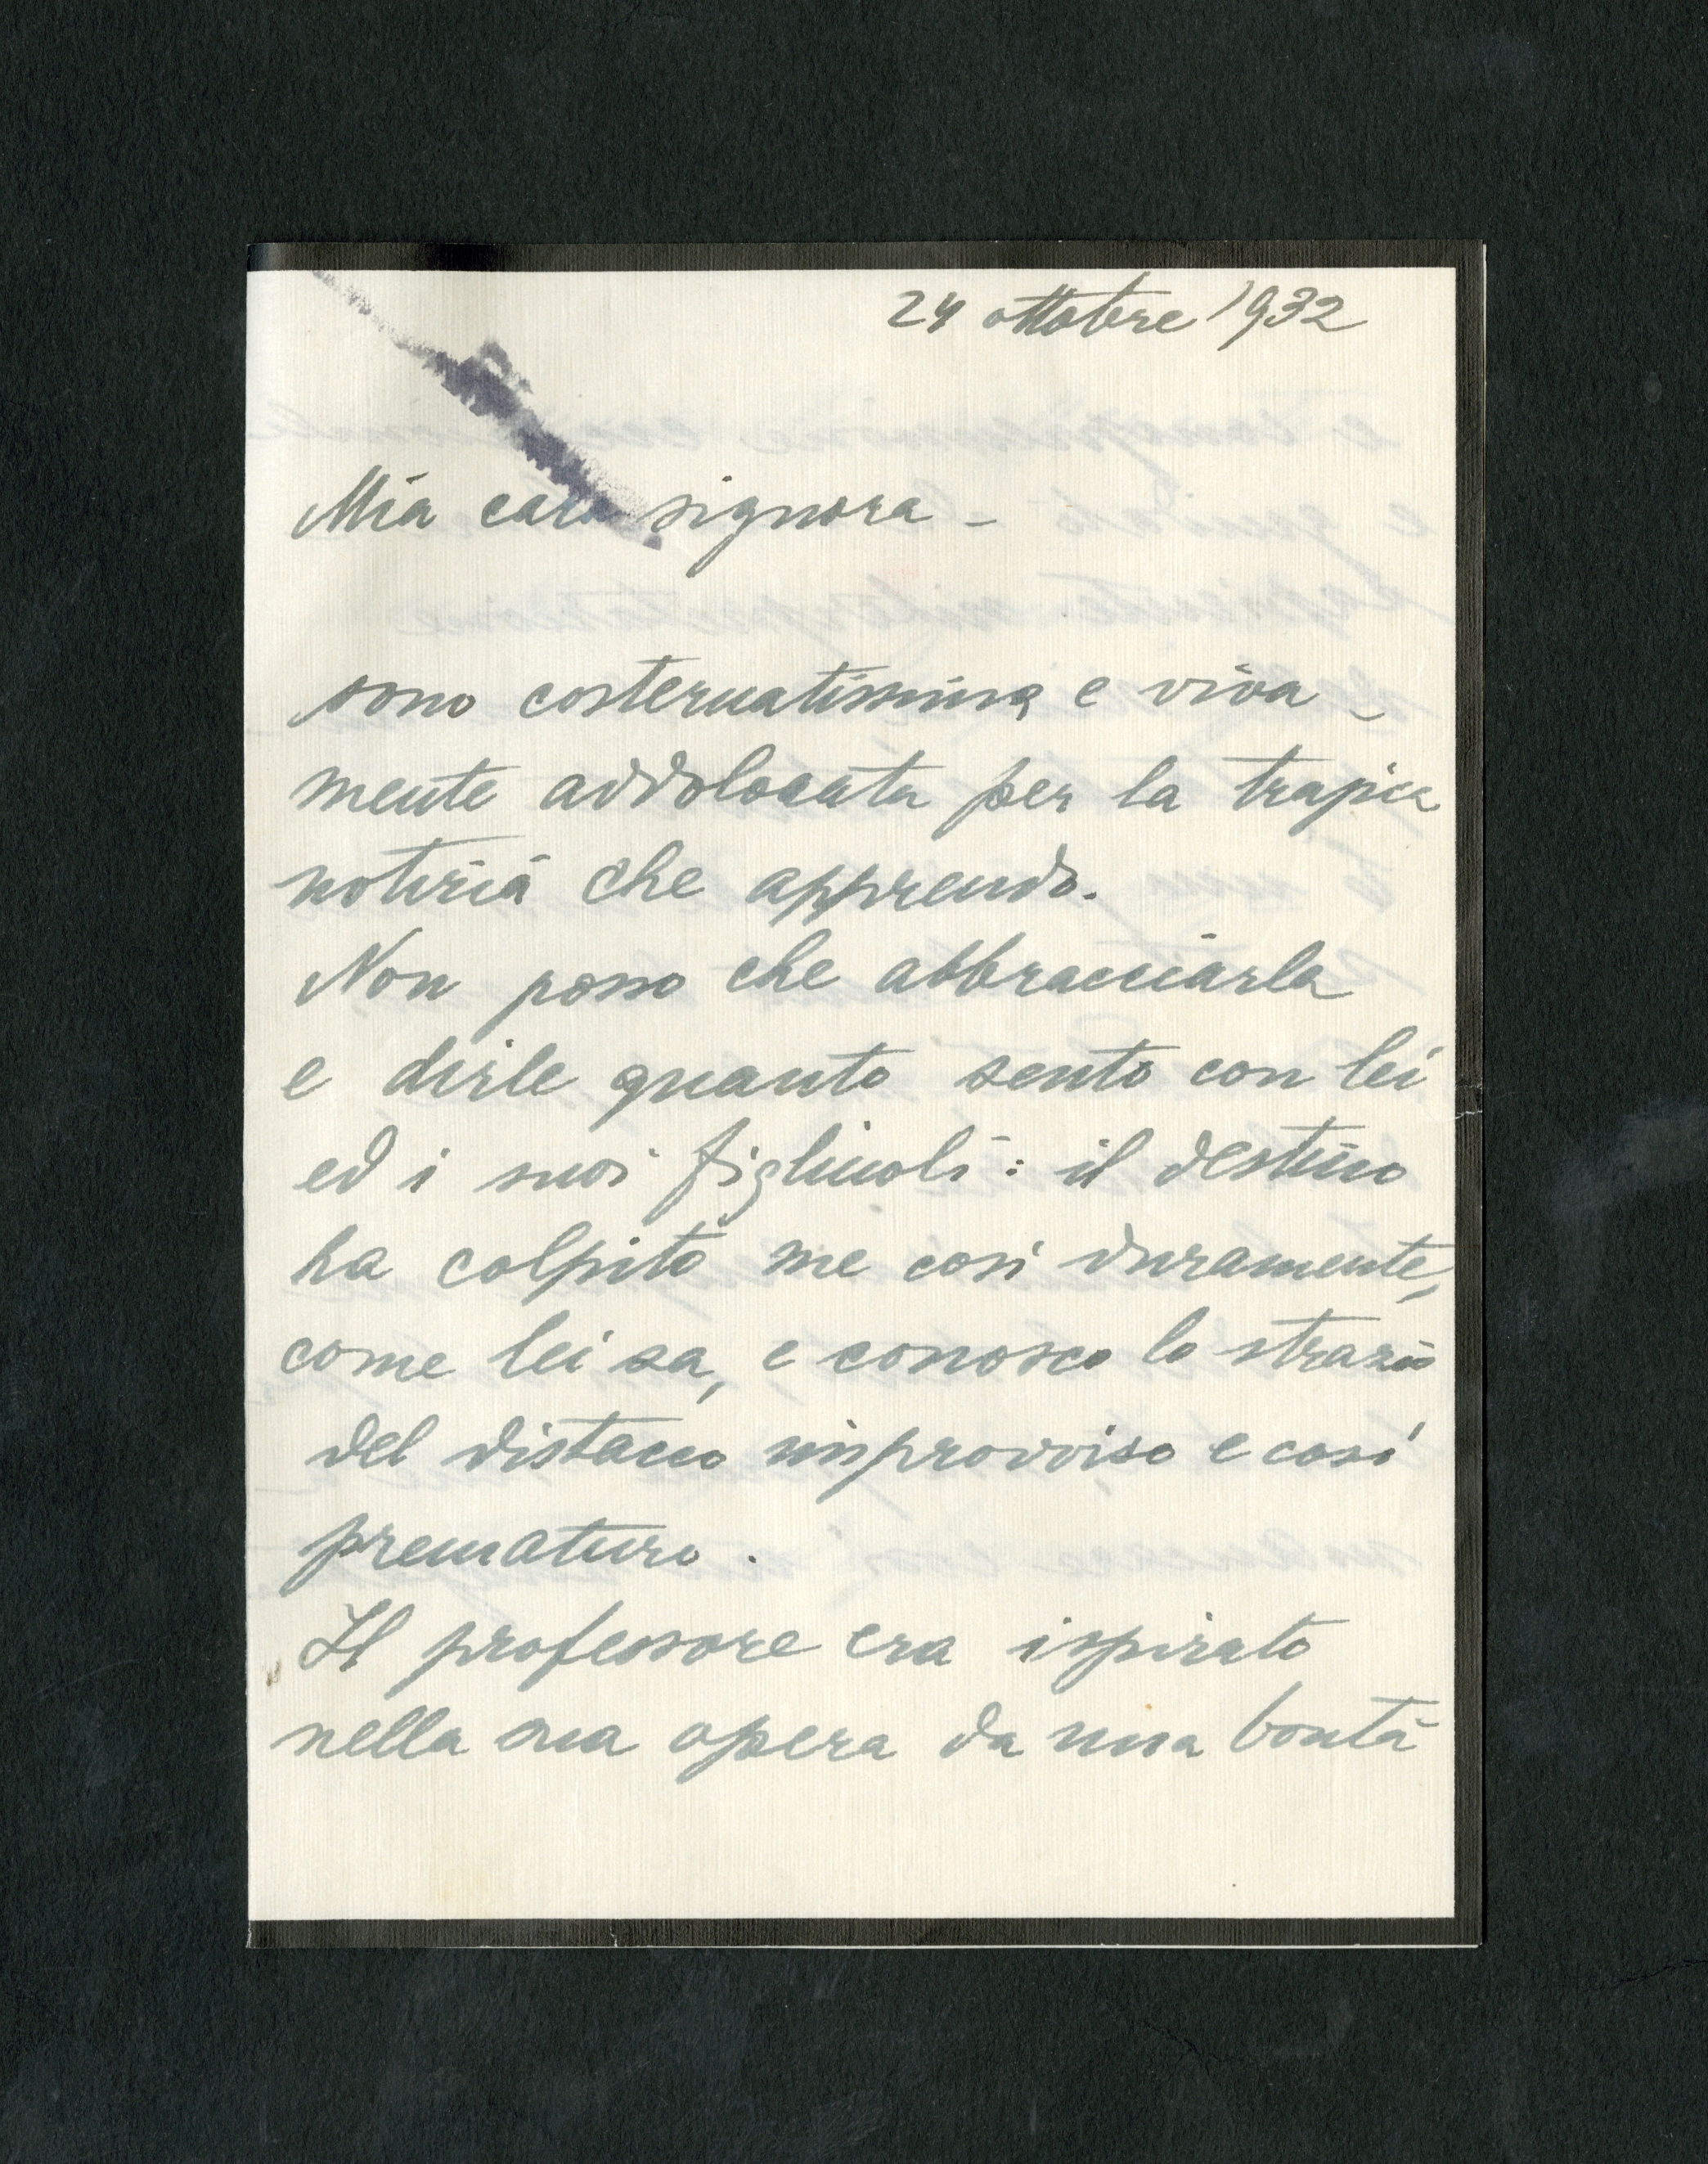 24 ottobre 1932
Mia cara signora -
sono costernatissima e viva-
mente addolorata per la tragica
notizia che apprendo.
Non posso che abbracciarla
e dirle quanto sento con lei
ed i suoi figliuoli: il destino
ha colpito me così duramente,
come lei sa, e conosco lo strazio
del distacco improvviso e così
prematuro.
Il professore era ispirato
nella sua opera da una bontà